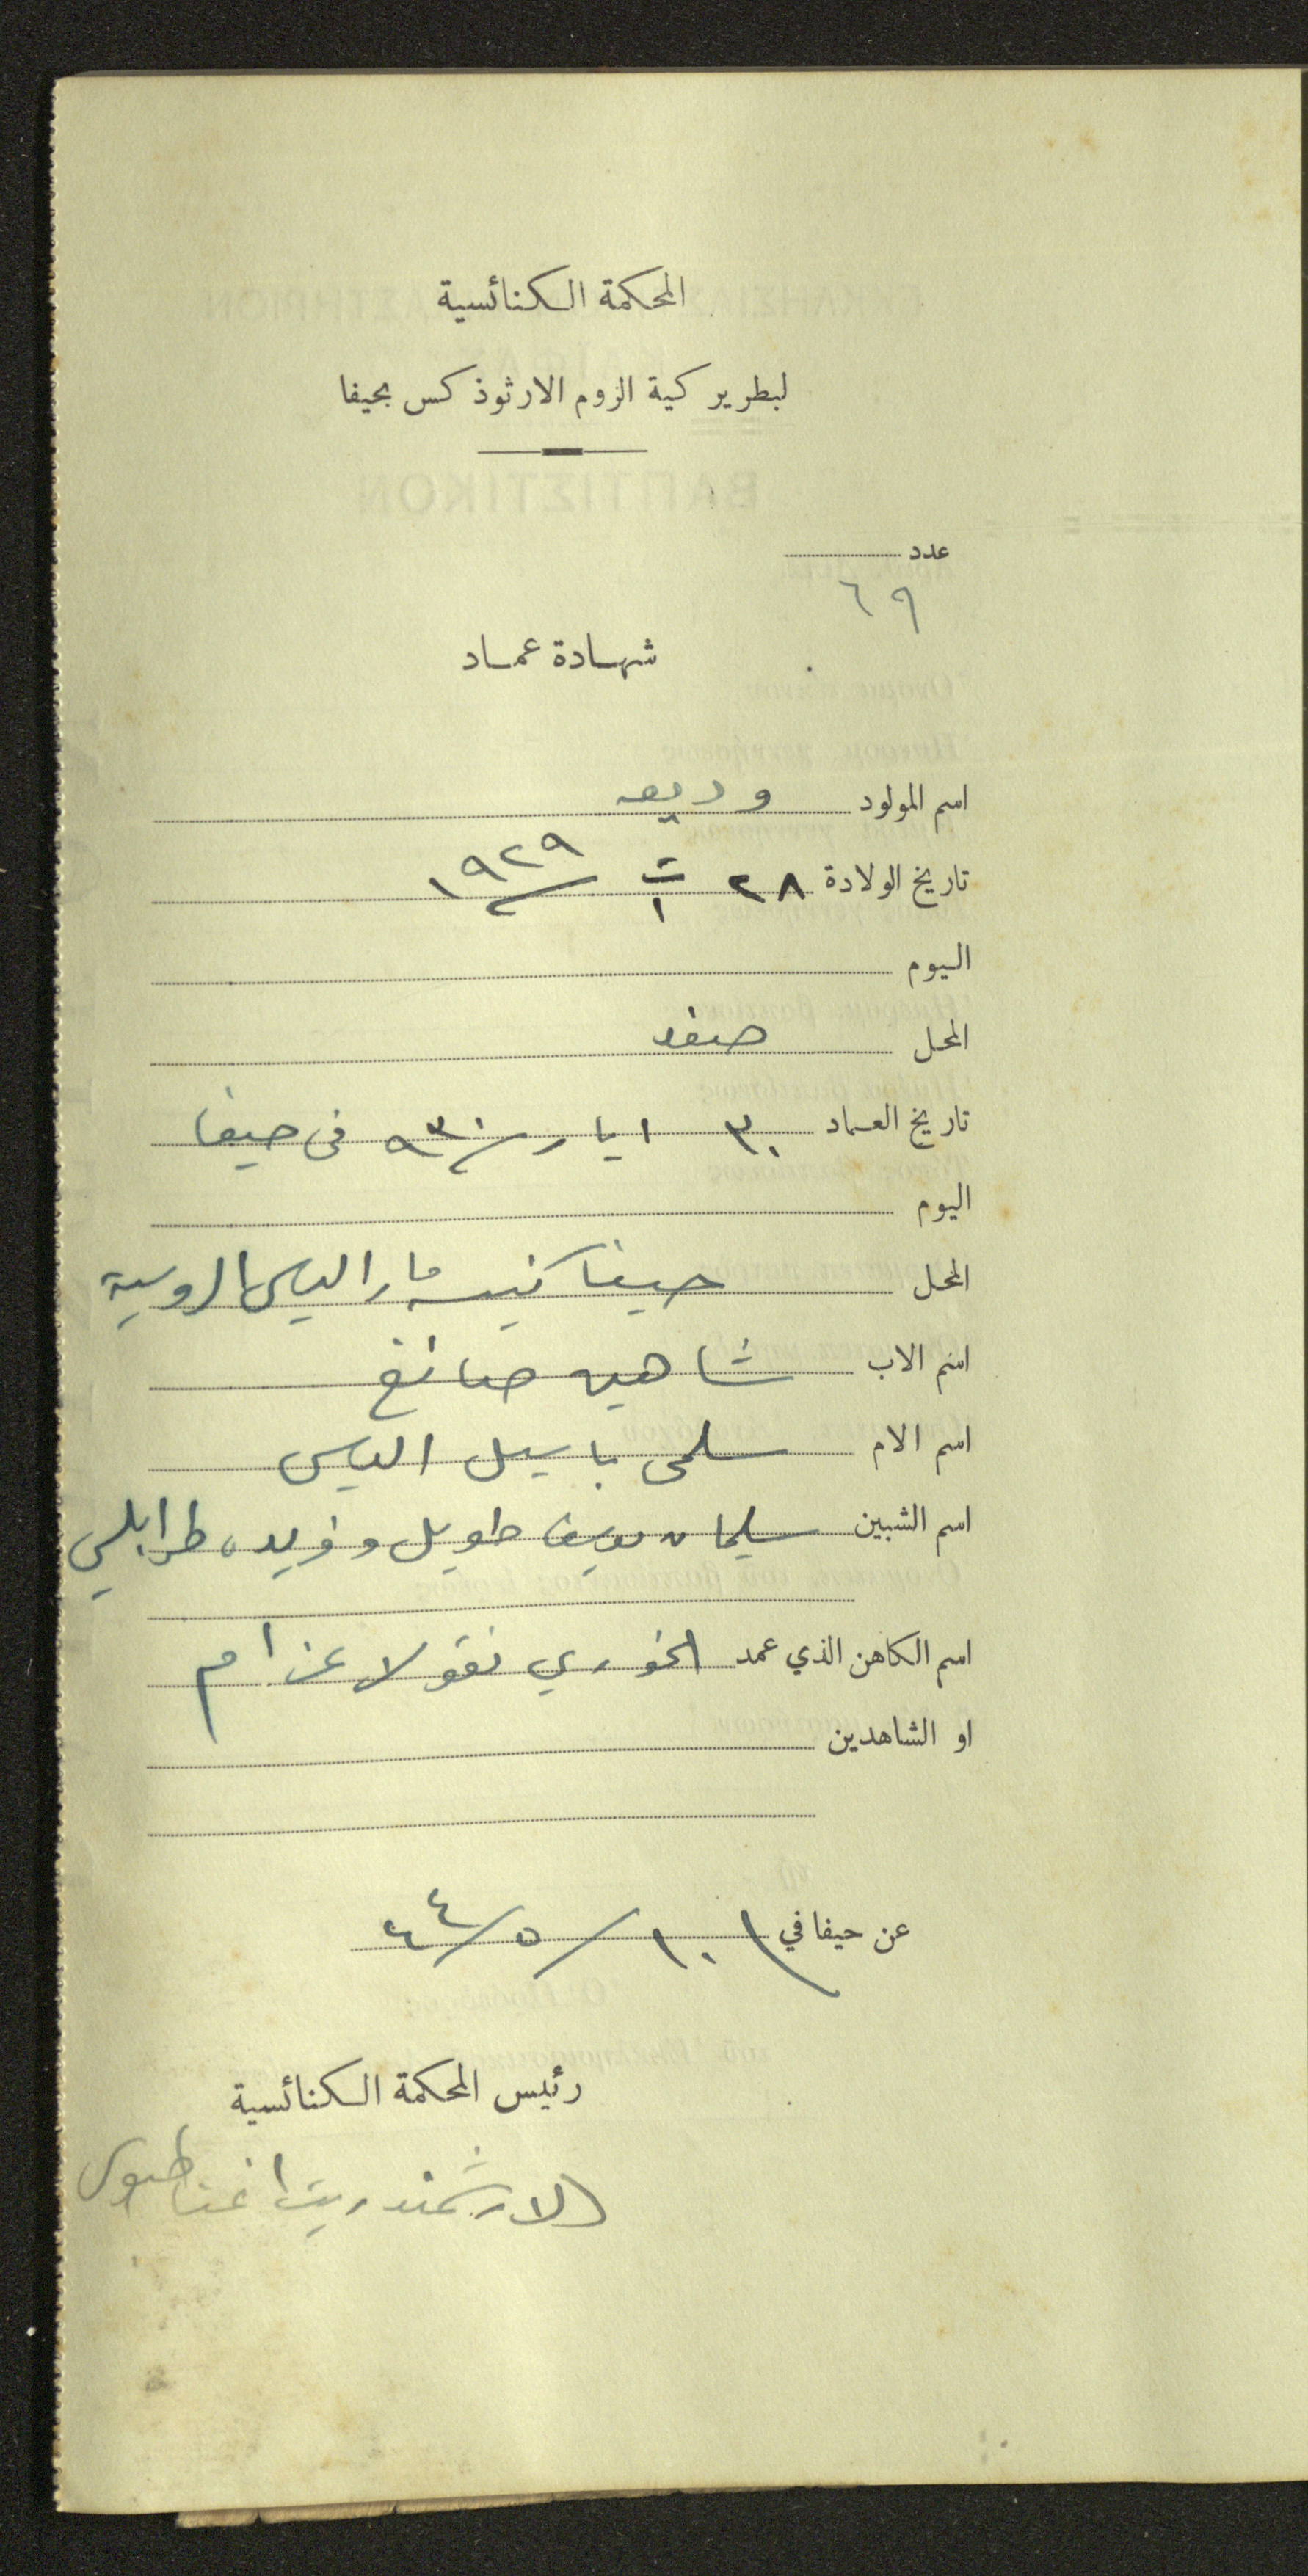 المحكمة الكنائسية
لبطريركية الروم الارثوذكس بحيفا
عدد
٦٩
شهادة عماد
اسم المولود وديعه
تاريخ الولادة ٢٨ ت١ ١٩٢٩
اليوم
المحل صفد
تاريخ العماد ٣٠ ايار ٩٣٠ في حيفا
اليوم
المحل حيفا كنيسة مار الياس الروسية
اسم الاب شاهين صائغ
اسم الام سلمى باسيل الياس
اسم الشبين سليمان يوسف طويل وفريده طرابلسي
اسم الكاهن الذي عمد الخوري نقولا عزام
او الشاهدين
عن حيفا في ١٠/٥/٤٤
رئيس المحكمة الكنائسية
الارشمندريت اغناطيوس